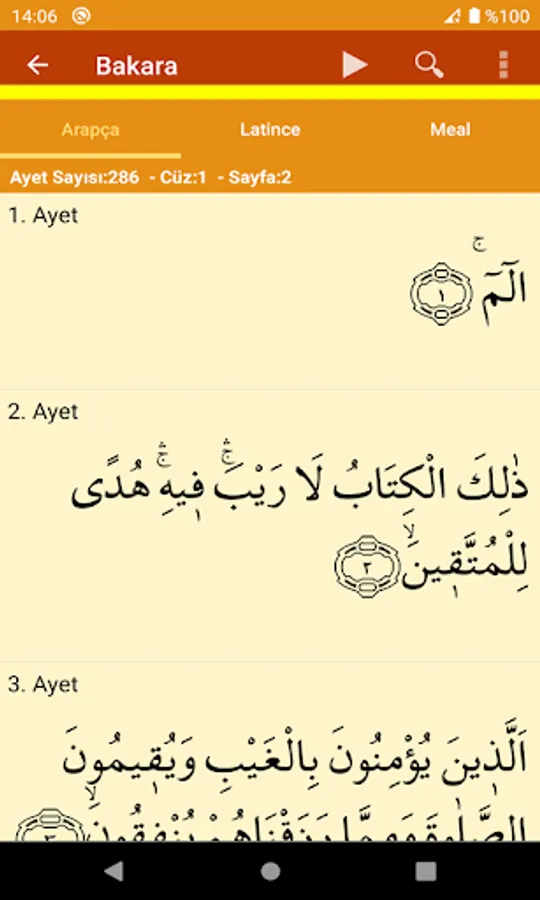 14:06 %100
Bakara
Arapça Latince Meal
Ayet Sayısı:286 - Cüz:1 - Sayfa:2
1. Ayet
الٓمٓ ۚ ﴿١﴾
2. Ayet
ذٰلِكَ الْكِتَابُ لَا رَيْبَ ۚۛ فٖيهِ ۚۛ هُدًى
لِلْمُتَّقٖينَ ۙ ﴿٢﴾
3. Ayet
اَلَّذٖينَ يُؤْمِنُونَ بِالْغَيْبِ وَيُقٖيمُونَ
الصَّلٰوةَ وَمِمَّا رَزَقْنَاهُمْ يُنْفِقُونَ ۙ ﴿٣﴾